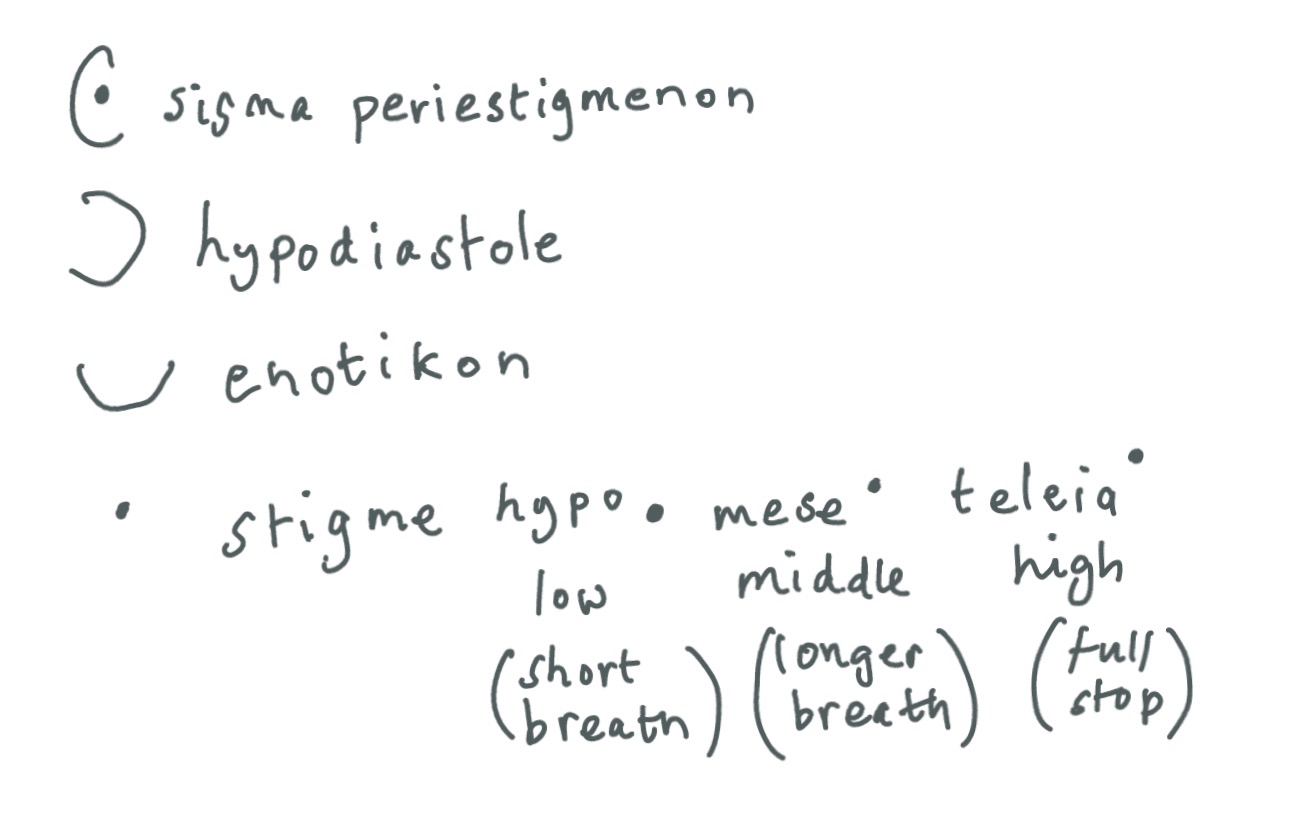 sigma periestigmenon
hypodiastole
enotikon
stigme hypo. mese· teleia˙
low middle high
(short breath) (longer breath) (full stop)